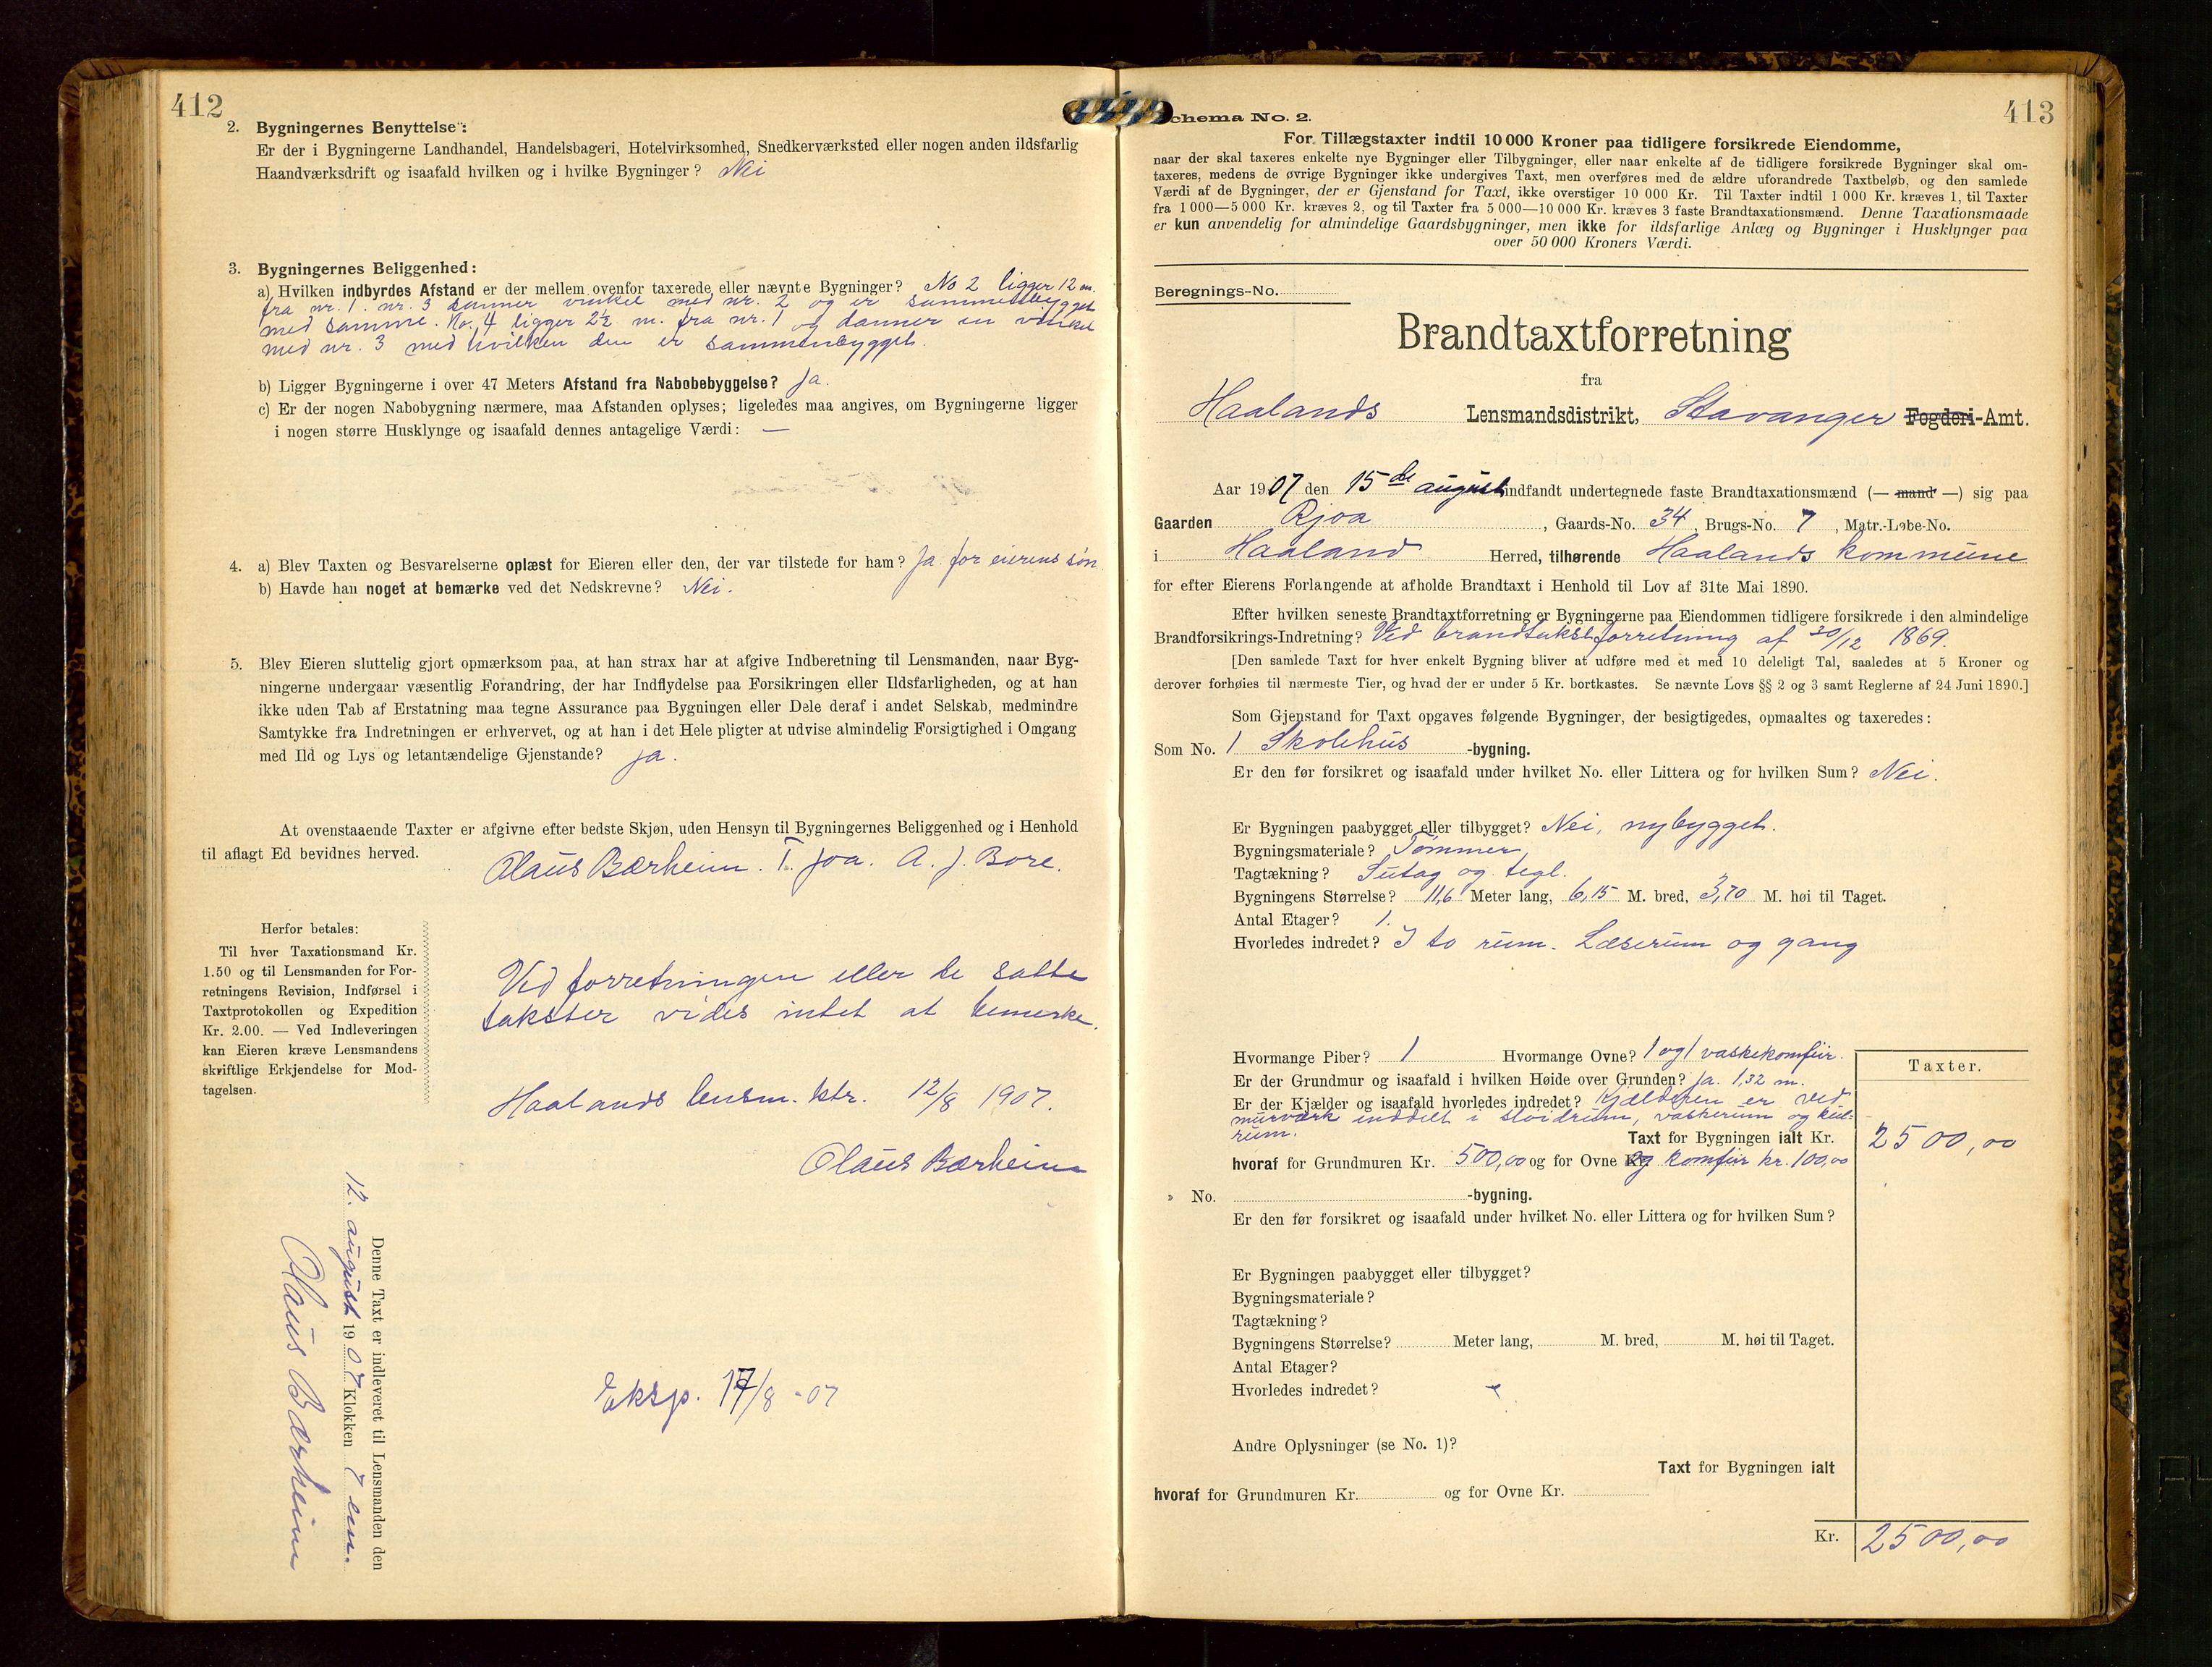 412
2. Bygningernes Benyttelse:
Er der i Bygningerne Landhandel, Handelsbageri, Hotelvirksomhed, Snedkerværksted eller nogen anden ildsfarlig
Haandværksdrift og isaafald hvilken og i hvilke Bygninger? Nei
3. Bygningernes Beliggenhed:
a) Hvilken indbyrdes Afstand er der mellem ovenfor taxerede eller nævnte Bygninger? No 2 ligger 12 m.
fra nr. 1. nr. 3 danner vinkel med nr. 2 og er sammenbygget
med samme. No. 4 ligger 2½ m. fra nr. 1 og danner en vinkel
med nr. 3 med hvilken den er sammenbygget.
b) Ligger Bygningerne i over 47 Meters Afstand fra Nabobebyggelse? Ja.
c) Er der nogen Nabobygning nærmere, maa Afstanden oplyses; ligeledes maa angives, om Bygningerne ligger
i nogen større Husklynge og isaafald dennes antagelige Værdi: —
4. a) Blev Taxten og Besvarelserne oplæst for Eieren eller den, der var tilstede for ham? Ja for eierens søn
b) Havde han noget at bemærke ved det Nedskrevne? Nei.
5. Blev Eieren sluttelig gjort opmærksom paa, at han strax har at afgive Indberetning til Lensmanden, naar Byg-
ningerne undergaar væsentlig Forandring, der har Indflydelse paa Forsikringen eller Ildsfarligheden, og at han
ikke uden Tab af Erstatning maa tegne Assurance paa Bygningen eller Dele deraf i andet Selskab, medmindre
Samtykke fra Indretningen er erhvervet, og at han i det Hele pligter at udvise almindelig Forsigtighed i Omgang
med Ild og Lys og letantændelige Gjenstande? ja.
At ovenstaaende Taxter er afgivne efter bedste Skjøn, uden Hensyn til Bygningernes Beliggenhed og i Henhold
til aflagt Ed bevidnes herved.
Olaus Bærheim. T. Joa. A. J. Bore.
Herfor betales:
Til hver Taxationsmand Kr.
1.50 og til Lensmanden for For-
retningens Revision, Indførsel i
Taxtprotokollen og Expedition
Kr. 2.00. — Ved Indleveringen
kan Eieren kræve Lensmandens
skriftlige Erkjendelse for Mod-
tagelsen.
Ved forretningen eller de satte
takster vides intet at bemerke.
Haalands lensm. ktr. 12/8 1907.
Olaus Bærheim
Denne Taxt er indleveret til Lensmanden den
12. august 1907 Klokken 7 em.
Olaus Bærheim
Eksp. 17/8 -07
413
chema No. 2.
For Tillægstaxter indtil 10 000 Kroner paa tidligere forsikrede Eiendomme,
naar der skal taxeres enkelte nye Bygninger eller Tilbygninger, eller naar enkelte af de tidligere forsikrede Bygninger skal om-
taxeres, medens de øvrige Bygninger ikke undergives Taxt, men overføres med de ældre uforandrede Taxtbeløb, og den samlede
Værdi af de Bygninger, der er Gjenstand for Taxt, ikke overstiger 10 000 Kr. Til Taxter indtil 1 000 Kr. kræves 1, til Taxter
fra 1 000—5 000 Kr. kræves 2, og til Taxter fra 5 000—10 000 Kr. kræves 3 faste Brandtaxationsmænd. Denne Taxationsmaade
er kun anvendelig for almindelige Gaardsbygninger, men ikke for ildsfarlige Anlæg og Bygninger i Husklynger paa
over 50 000 Kroners Værdi.
Beregnings-No.
Brandtaxtforretning
fra
Haalands Lensmandsdistrikt, Stavanger Fogderi-Amt.
Aar 1907 den 15de august indfandt undertegnede faste Brandtaxationsmænd (— mand —) sig paa
Gaarden Rjoa, Gaards-No. 34, Brugs-No. 7, Matr.-Løbe-No.
i Haaland Herred, tilhørende Haalands kommune
for efter Eierens Forlangende at afholde Brandtaxt i Henhold til Lov af 31te Mai 1890.
Efter hvilken seneste Brandtaxtforretning er Bygningerne paa Eiendommen tidligere forsikrede i den almindelige
Brandforsikrings-Indretning? Ved brandtakstforretning af 20/12 1869.
[Den samlede Taxt for hver enkelt Bygning bliver at udføre med et med 10 deleligt Tal, saaledes at 5 Kroner og
derover forhøies til nærmeste Tier, og hvad der er under 5 Kr. bortkastes. Se nævnte Lovs §§ 2 og 3 samt Reglerne af 24 Juni 1890.]
Som Gjenstand for Taxt opgaves følgende Bygninger, der besigtigedes, opmaaltes og taxeredes:
Som No. 1 Skolehus -bygning.
Er den før forsikret og isaafald under hvilket No. eller Littera og for hvilken Sum? Nei.
Er Bygningen paabygget eller tilbygget? Nei, nybygget.
Bygningsmateriale? Tømmer
Tagtækning? Sutag og tegl.
Bygningens Størrelse? 11,6 Meter lang, 6,15 M. bred, 3,70 M. høi til Taget.
Antal Etager? 1.
Hvorledes indredet? I to rum. Læserum og gang
Hvormange Piber? 1 Hvormange Ovne? 1 og 1 vaskekomfur.
Er der Grundmur og isaafald i hvilken Høide over Grunden? ja. 1,32 m.
Er der Kjælder og isaafald hvorledes indredet? Kjælderen er ved
murværk inddelt i sløidrum, vaskerum og kul-
rum.
Taxt for Bygningen ialt Kr.
hvoraf for Grundmuren Kr. 500,00 og for Ovne Kr. og komfur kr. 100,00
Taxter.
2500,00
» No. -bygning.
Er den før forsikret og isaafald under hvilket No. eller Littera og for hvilken Sum?
Er Bygningen paabygget eller tilbygget?
Bygningsmateriale?
Tagtækning?
Bygningens Størrelse? Meter lang, M. bred, M. høi til Taget.
Antal Etager?
Hvorledes indredet?
Andre Oplysninger (se No. 1)?
Taxt for Bygningen ialt
hvoraf for Grundmuren Kr. og for Ovne Kr.
Kr. 2500,00